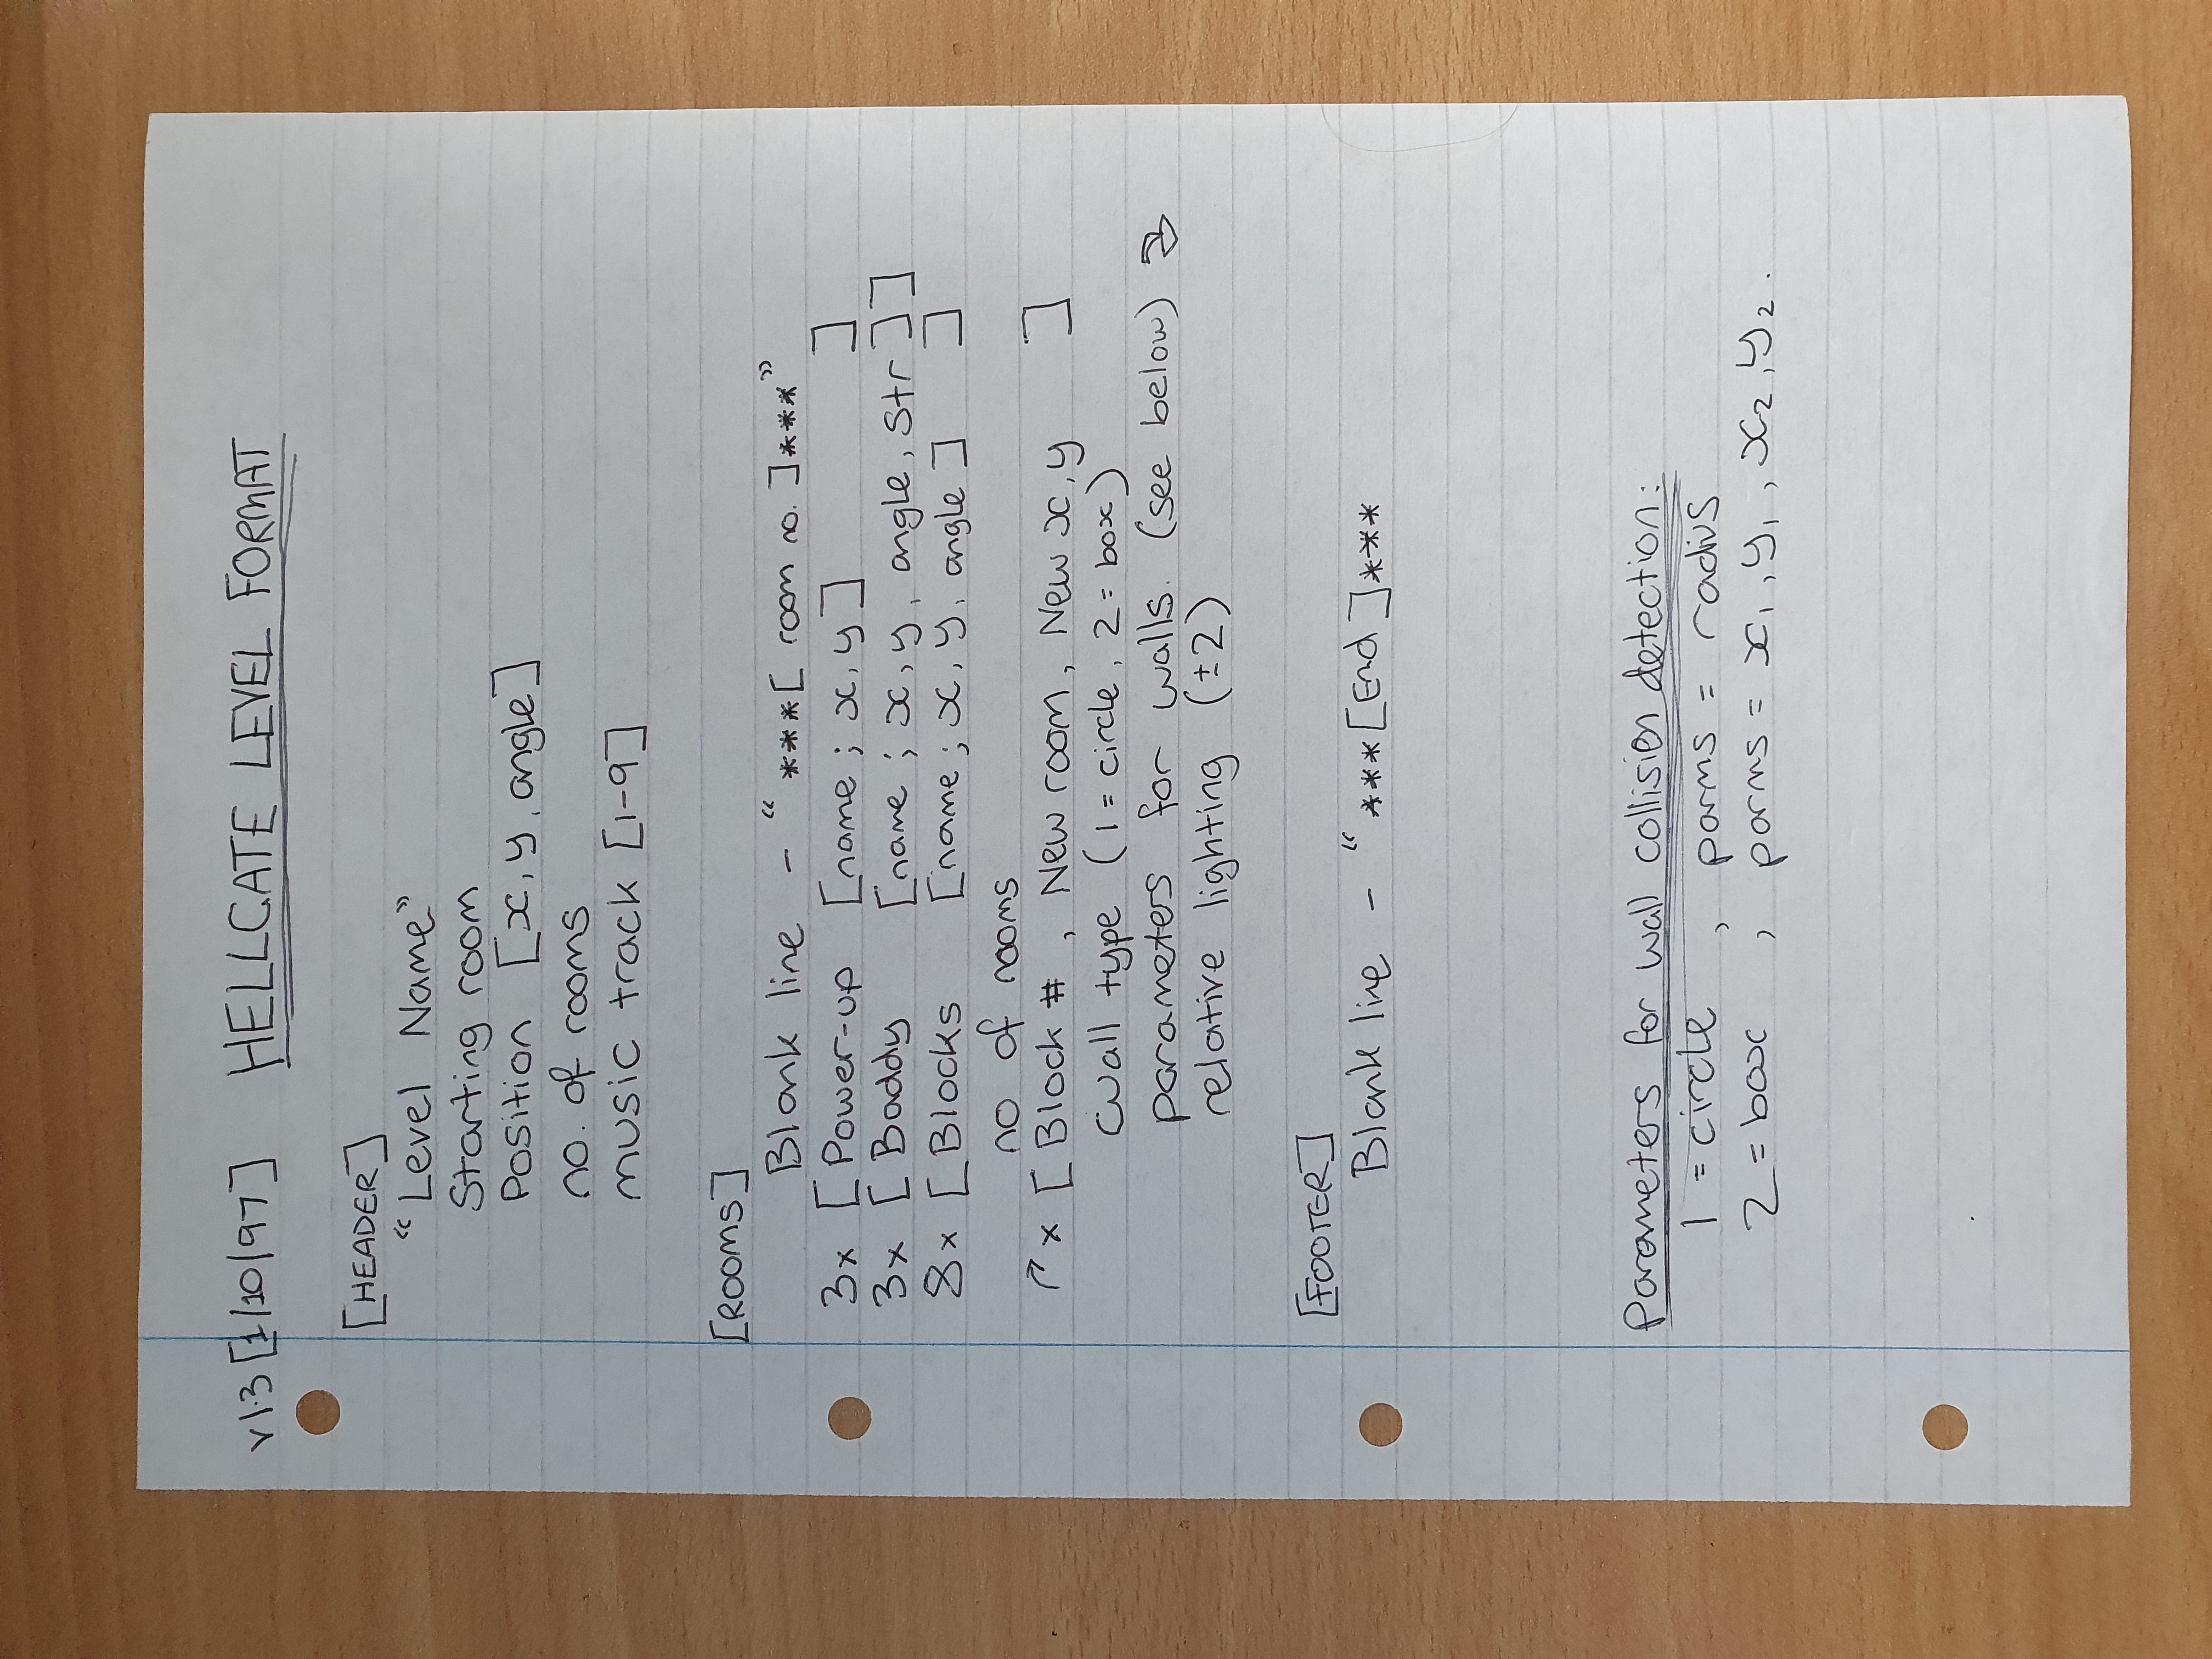 v1.3 [1/10/97] HELLGATE LEVEL FORMAT
[HEADER]
"Level Name"
Starting room
Position [x, y, angle]
no. of rooms
music track [1-9]
[ROOMS]
Blank line - "***[ room no. ]***"
3x [ Power-up [name ; x, y ] ]
3x [ Baddy [name ; x, y, angle, str ] ]
8x [ Blocks [name ; x, y, angle ] ]
no of rooms
↱ x [ Block # , New room, New x, y ]
Wall type (1 = circle, 2 = box)
parameters for walls. (see below) ↴
relative lighting (±2)
[FOOTER]
Blank line - "***[End]***
Parameters for wall collision detection:
1 = circle , parms = radius
2 = box , parms = x₁, y₁, x₂, y₂.